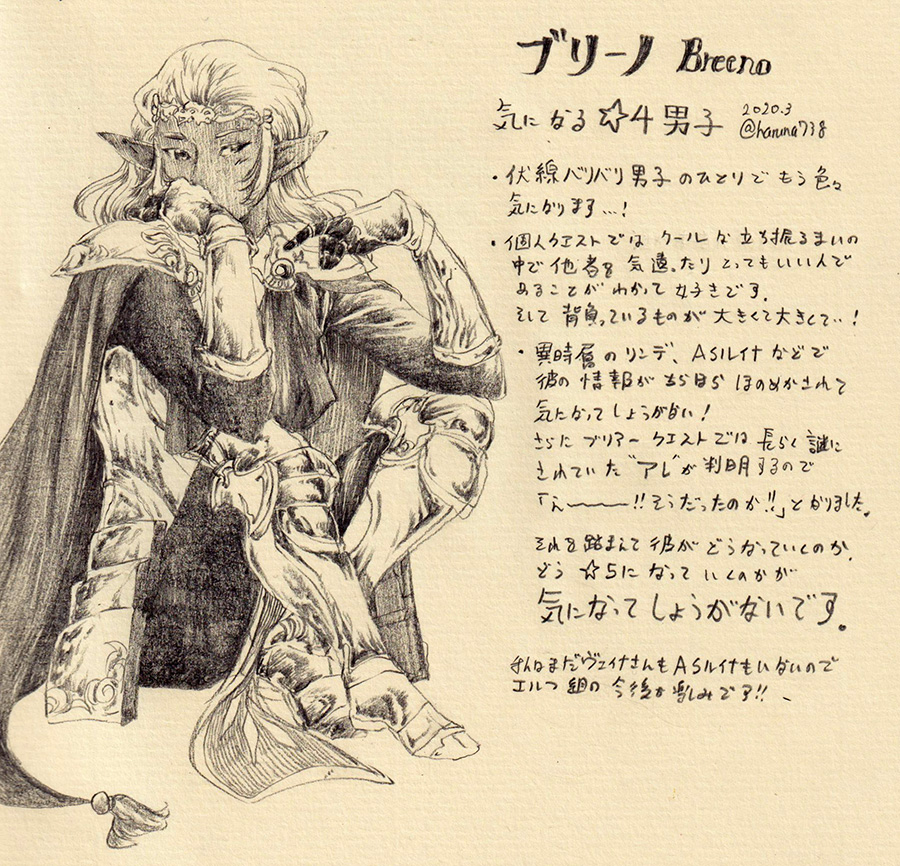 ブリーノ Breeno
気になる☆4男子 2020.3
@haruna738
・伏線バリバリ男子のひとりでもう色々
気になります…!
・個人クエストではクールな立ち振るまいの
中で他者を気遣ったりとってもいい人で
あることがわかって好きです。
そして背負っているものが大きくて大きくて…!
・異時層のリンデ、ASルイナなどで
彼の情報がちらほらほのめかされて
気になってしょうがない!
さらにブリアークエストでは長らく謎に
されていた"アレ"が判明するので
「えーーー!!そうだったのか!!」となりました。
それを踏まえて彼がどうなっていくのか、
どう☆5になっていくのかが
気になってしょうがないです。
私はまだヴェイナさんもASルイナもいないので
エルフ組の今後が楽しみです!!